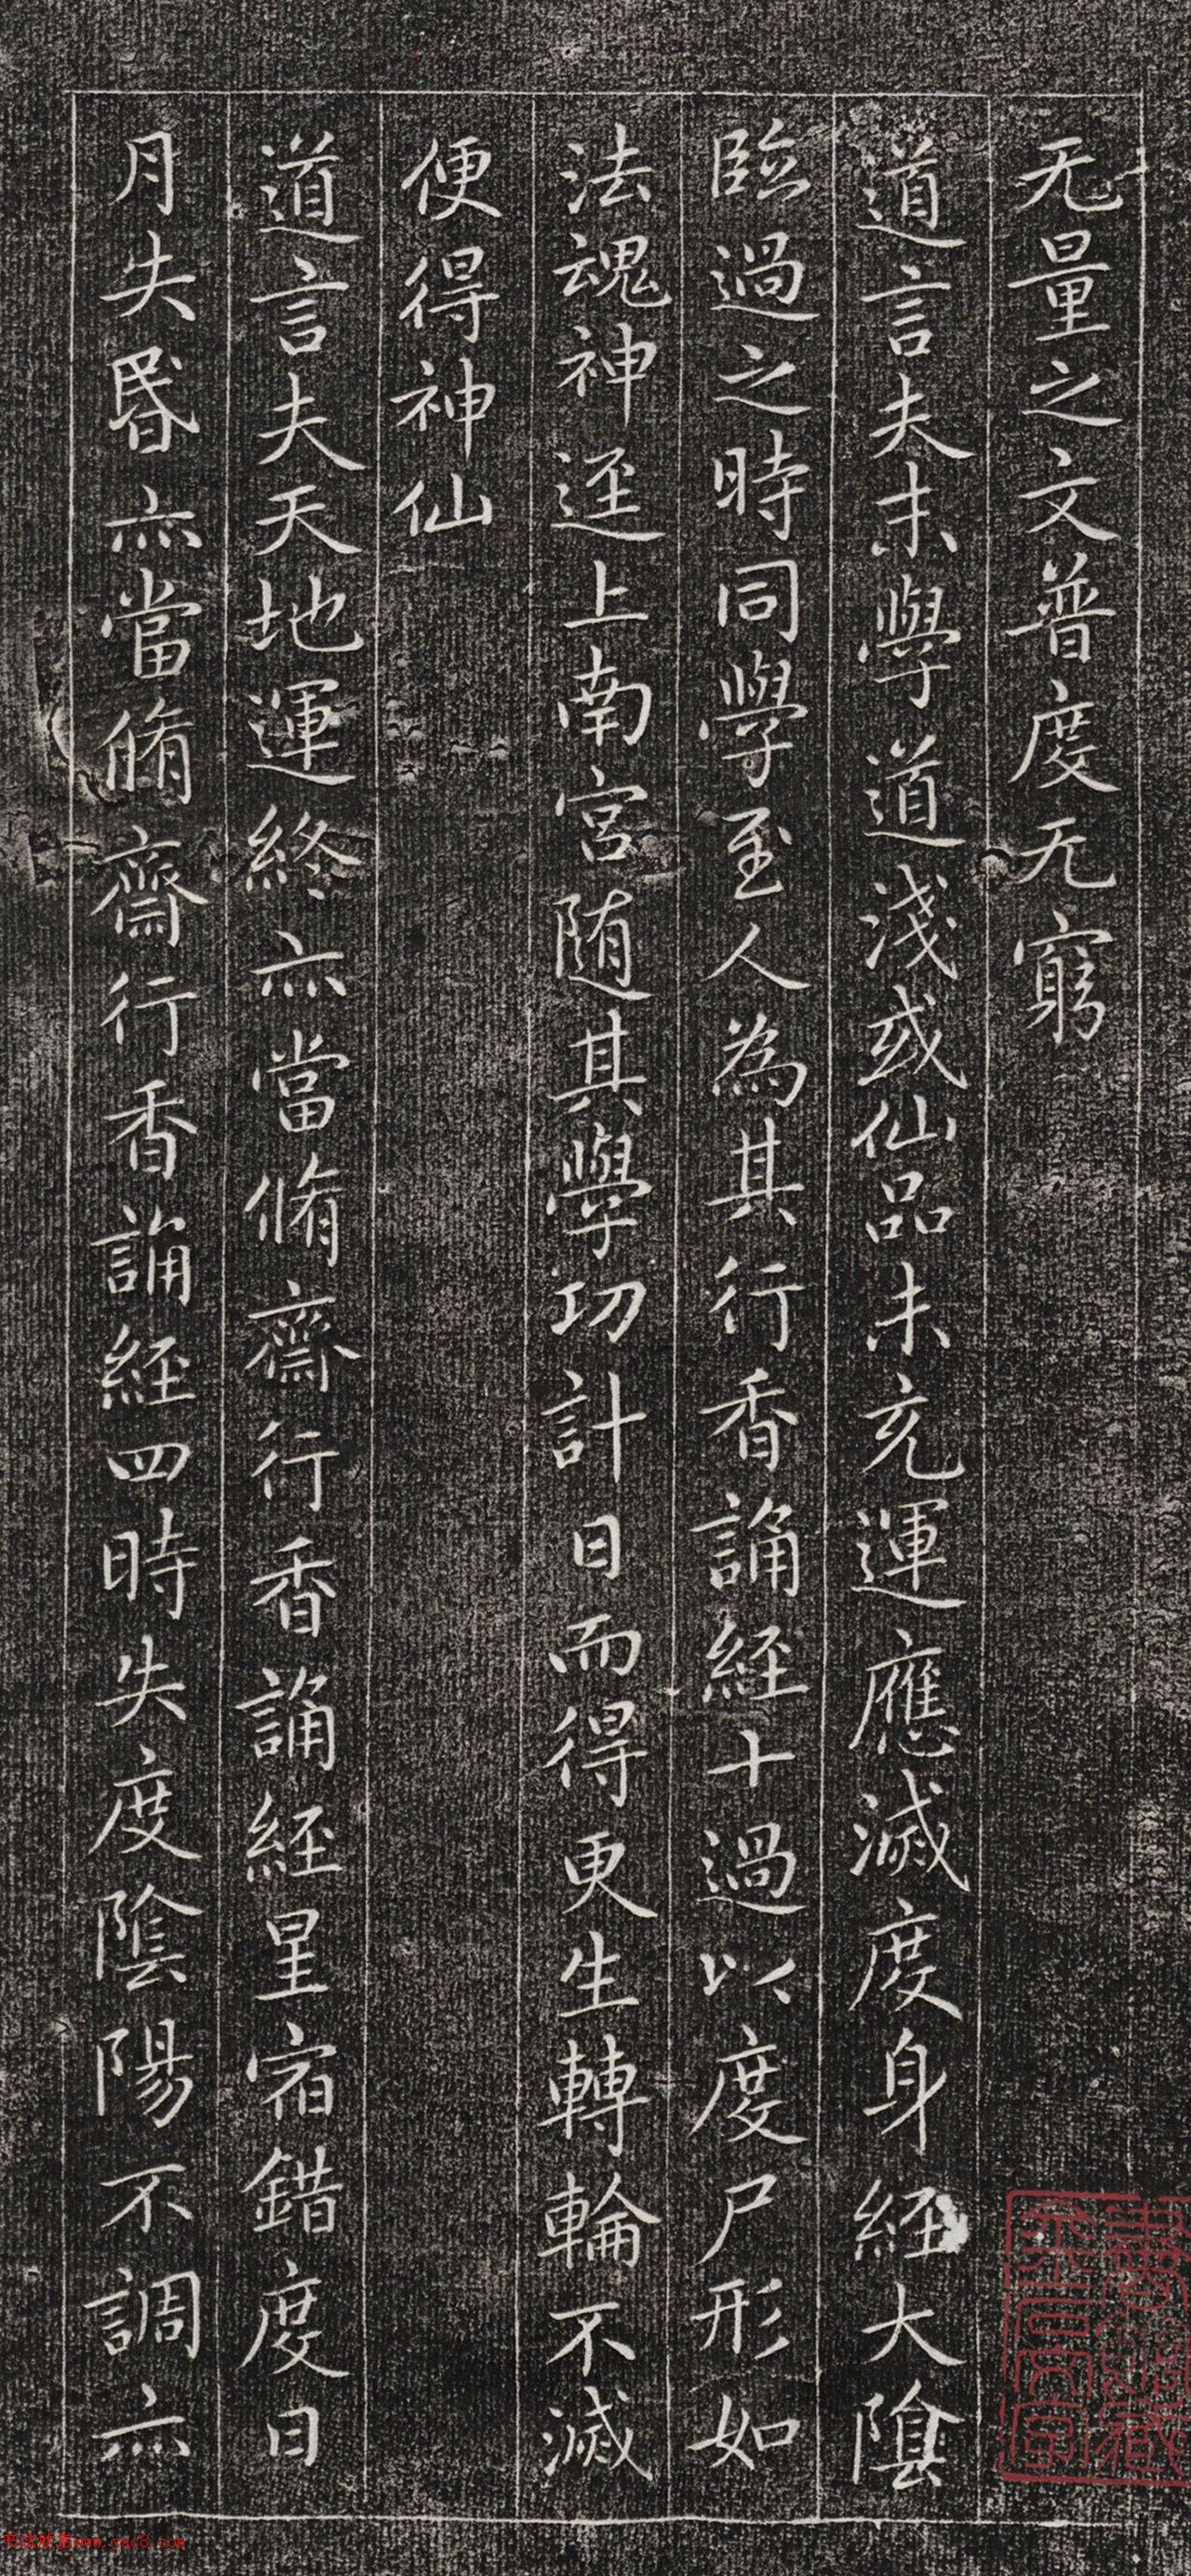 无量之文普度无窮
道言夫末學道淺或仙品未充運應滅度身經大陰
臨過之時同學至人為其行香誦經十過以度尸形如
法魂神逕上南宮随其學功計日而得更生轉輪不滅
便得神仙
道言夫天地運終亦當脩齋行香誦經星宿錯度日
月失昬亦當脩齋行香誦經四時失度陰陽不調亦
www.yac8.com